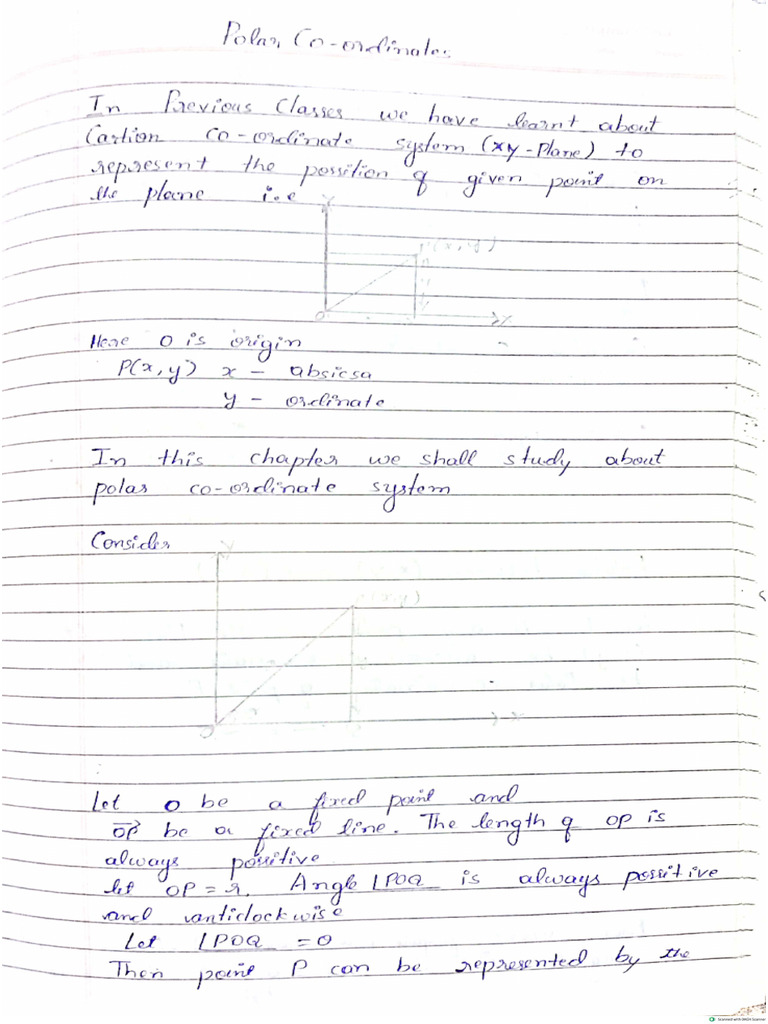 Polar Co-ordinates
In Previous Classes we have learnt about
Cartion Co-ordinate system (xy-Plane) to
represent the possition of given point on
the plane i.e
Y
P(x,y)
O X
Here O is origin
P(x,y) x - absicsa
y - ordinate
In this chapter we shall study about
polar co-ordinate system
Consider
Y
O X
Let O be a fixed point and
OP be a fixed line. The length of OP is
always possitive
let OP = r. Angle ∠POQ is always possitive
and anticlockwise
Let ∠POQ = θ
Then point P can be represented by the
Scanned with OKEN Scanner